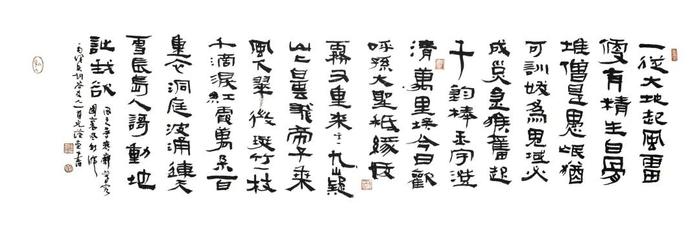 一從大地起風雷
便有精生白骨
堆僧是愚氓猶
可訓妖為鬼蜮必
成災金猴奮起
千鈞棒玉宇澄
清萬里埃今日歡
呼孫大聖祇緣妖
霧又重來九嶷
山上白雲飛帝子乘
風下翠微斑竹一枝
千滴淚紅霞萬朵百
重衣洞庭波涌連天
雪長島人歌動地
詩我欲